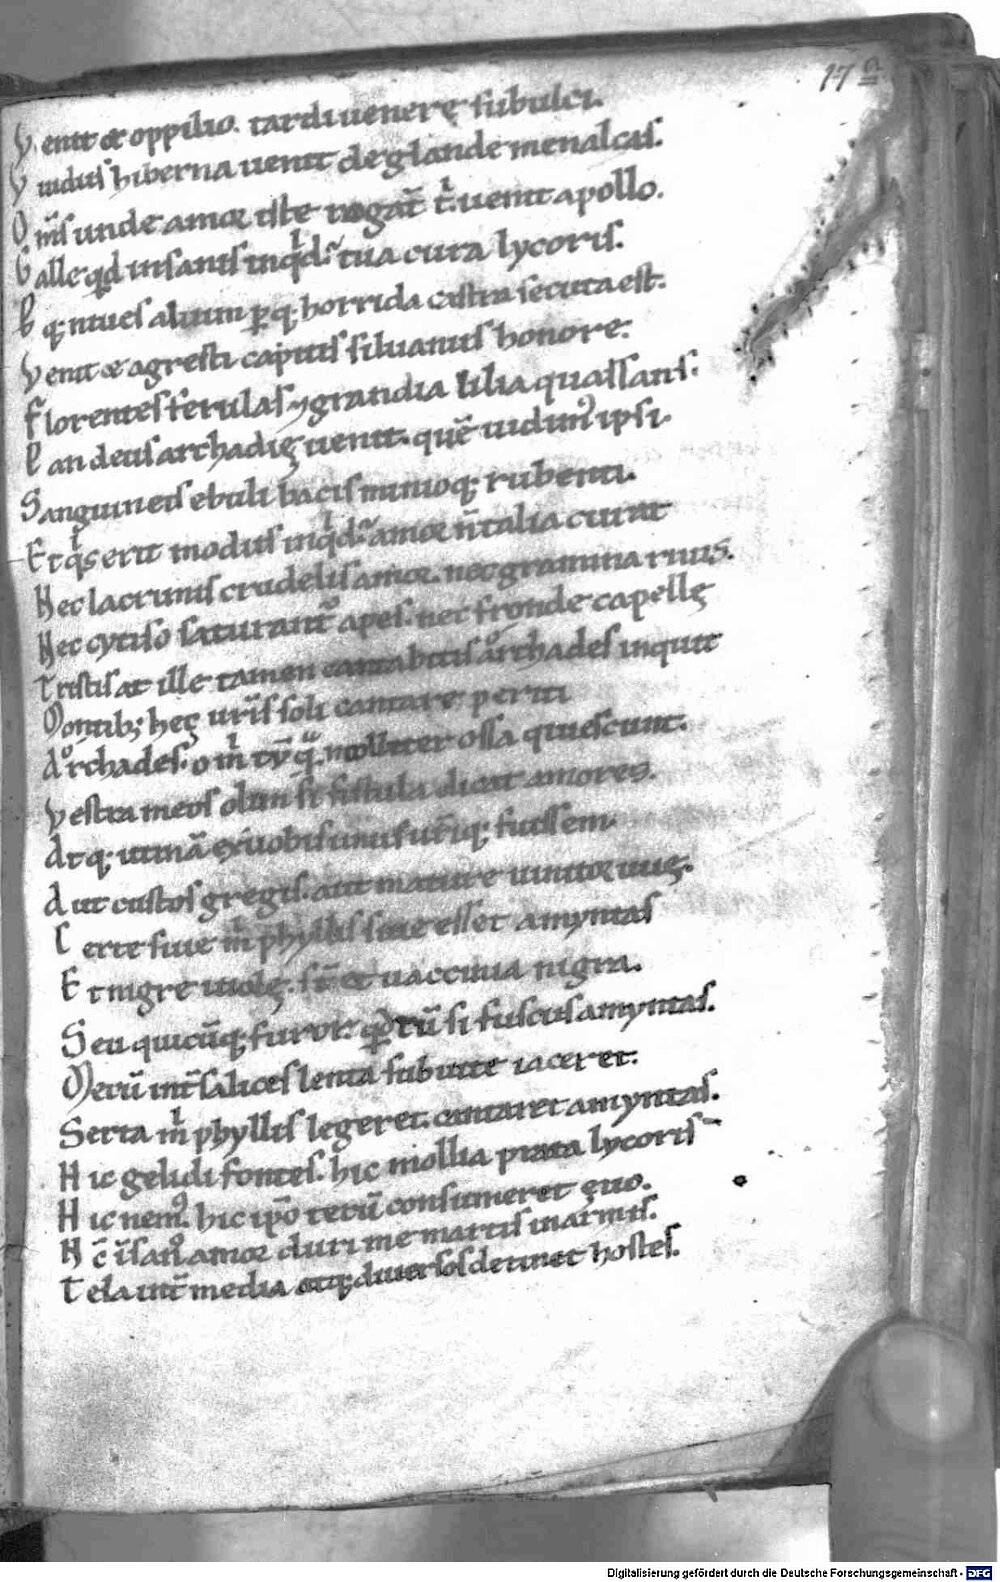 17 a
Venit & oppilio. tardi venerę subulci.
Vuidus hiberna uenit de glande menalcas.
Om̄s unde amor iste rogat̄ t.ͥ uenit apollo.
Galle qͥd insanis inqͥd.ͣ tua cura lycoris.
Pq; niues alium ꝑq; horrida castra secuta est.
Venit & agresti capitis siluanus honore.
Florentes ferulas ⁊ grandia lilia quassans.
Pan deus archadię uenit. quē uidimꝰ ipsi.
Sanguineis ebuli bacis minioq; rubenti.
Et qͥs erit modus inqͥd.ͣ amor n̄ talia curat
Nec lacrimis crudelis amor. nec gramina riuis.
Nec cytiso saturant᷑ apes. nec fronde capellę
Tristis at ille tamen cantabitis archades inquit
Montib; hęc ur̄is soli cantare periti
Archades. o mͥ tū qͣ molliter ossa quiescunt.
Vestra meos olim si fistula dicat amores.
Atq; utinā ex uobis unus ur̄iq; fuissem.
Aut custos gregis. aut mature uinitor uuę.
Certe siue mͥ phyllis siue esset amyntas
Et nigre uiolę. st̄ & uaccinia nigra.
Seu quicūq; furor. qͥd tū si fuscus amyntas.
Mecū int̄ salices lenta sub uite iaceret.
Serta mͥ phyllis legeret. cantaret amyntas.
Hic gelidi fontes. hic mollia prata lycoris
Hic nemꝰ. hic ip̄o tecū consumeret ęuo.
Nc̄ īsanꝰ amor duri me martis in armis.
Tela int̄ media atq; diuersos detinet hostes.
Digitalisierung gefördert durch die Deutsche Forschungsgemeinschaft - DFG